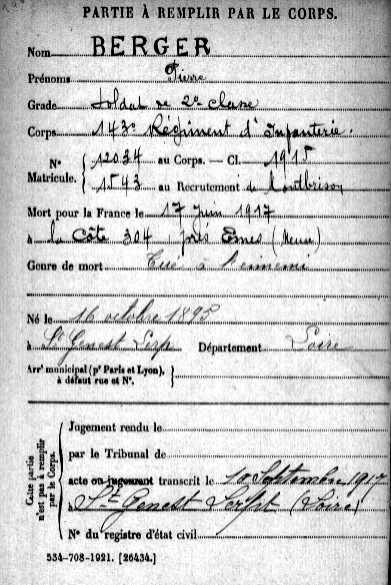 PARTIE À REMPLIR PAR LE CORPS.
Nom BERGER
Prénoms Pierre
Grade Soldat de 2e classe
Corps 143e Régiment d'Infanterie.
N° Matricule. { 12034 au Corps. — Cl. 1915
1543 au Recrutement de Montbrison
Mort pour la France le 17 juin 1917
à la Côte 304, près Esnes (Meuse)
Genre de mort Tué à l'ennemi
Né le 16 octobre 1895
à St Genest Lerp Département Loire
Arrt municipal (pr Paris et Lyon), à défaut rue et N°. }
Cette partie n'est pas à remplir par le Corps.
Jugement rendu le
par le Tribunal de
acte ou jugement transcrit le 10 Septembre 1917
à St Genest Lerpt (Loire)
N° du registre d'état civil
534-708-1921. [26434.]